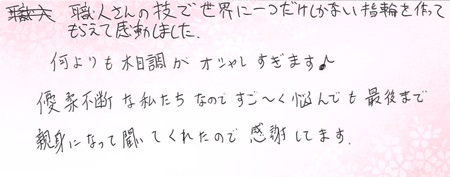 職人さんの技で世界に一つだけしかない指輪を作って
もらえて感動しました.
何よりも木目調がオシャレすぎます♪
優柔不断な私たちなのですご〜く悩んでも最後まで
親身になって聞いてくれたので感謝してます.